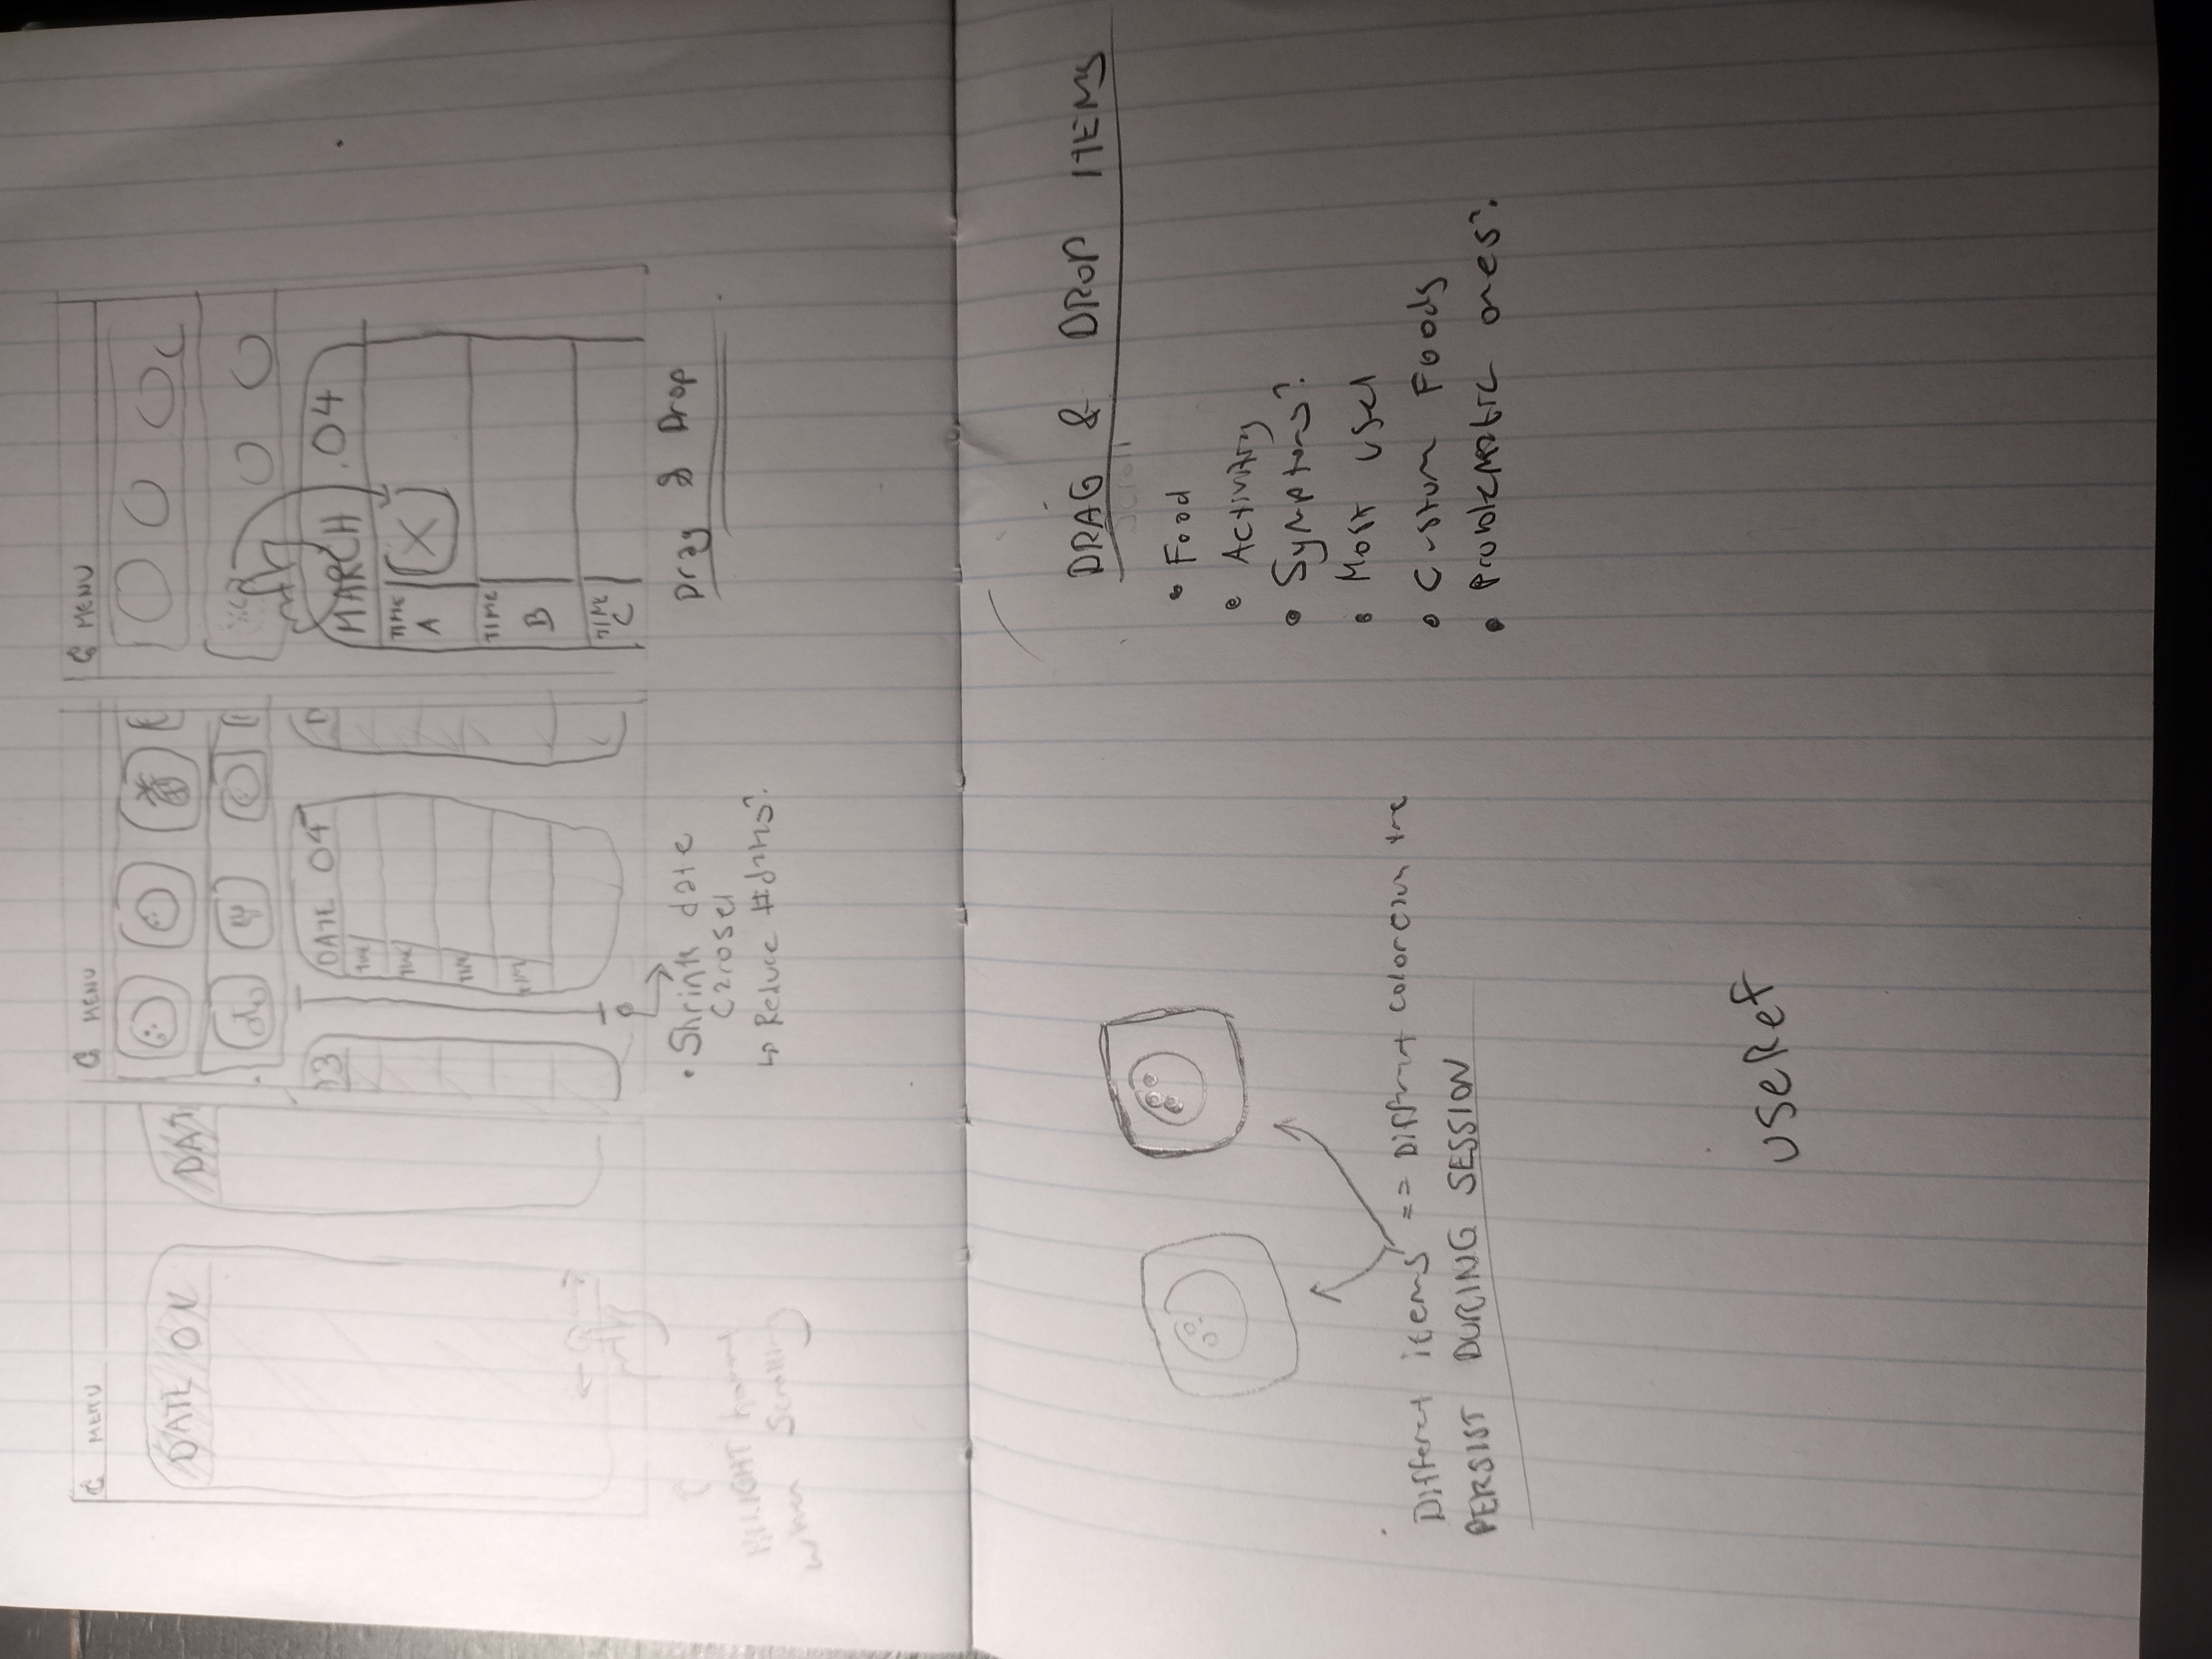 MENU
DATE ON
DAT
HILIGHT
when Scrolling
MENU
03
DATE 04
TIME
TIME
TIME
TIM
D
• Shrink date
carosel
↳ Reduce #dates?
MENU
MARCH 04
TIME
A
X
TIME
B
TIME
C
Drag & Drop
Different items == Different color
PERSIST DURING SESSION
useRef
DRAG & DROP ITEMS
• Food
• Activity
• Symptoms?
• Most used
• Custom Foods
• Problematic ones?